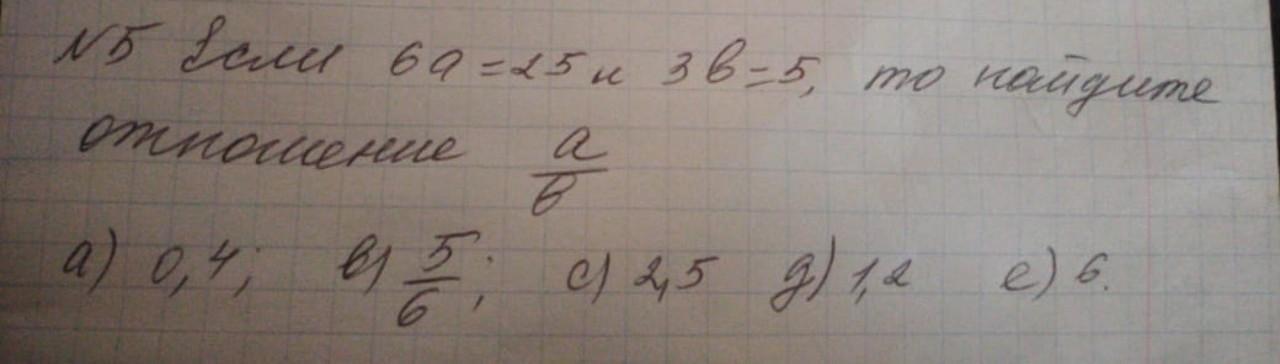 №5 Если 6а=25 и 3в=5, то найдите
отношение а/в
а) 0,4; в) 5/6; с) 2,5 д) 1,2 е) 6.